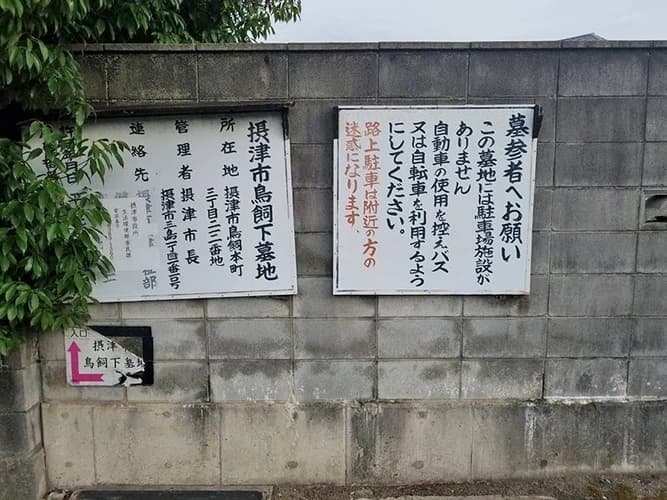 墓参者へお願い
この墓地には駐車場施設が
ありません
自動車の使用を控えバス
又は自転車を利用するよう
にしてください。
路上駐車は附近の方の
迷惑になります。
摂津市鳥飼下墓地
所在地 摂津市鳥飼本町
三丁目二二番地
管理者 摂津市長
摂津市三島一丁目一番一号
連絡先
摂津市役所
部
入口
摂津市
鳥飼下墓地